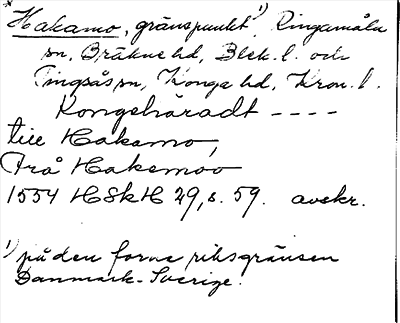 * Hakamo, gränspunkt 1), Ringamåla
sn, Bräkne hd, Blek. l. och
Tingsås sn, Konga hd, Kron. l.
Kongshäradt ----
till Hakamo,
Frå Hakemoo
1554 HSkH 29, s. 59. avskr.
1) på den forna riksgränsen
Danmark-Sverige.